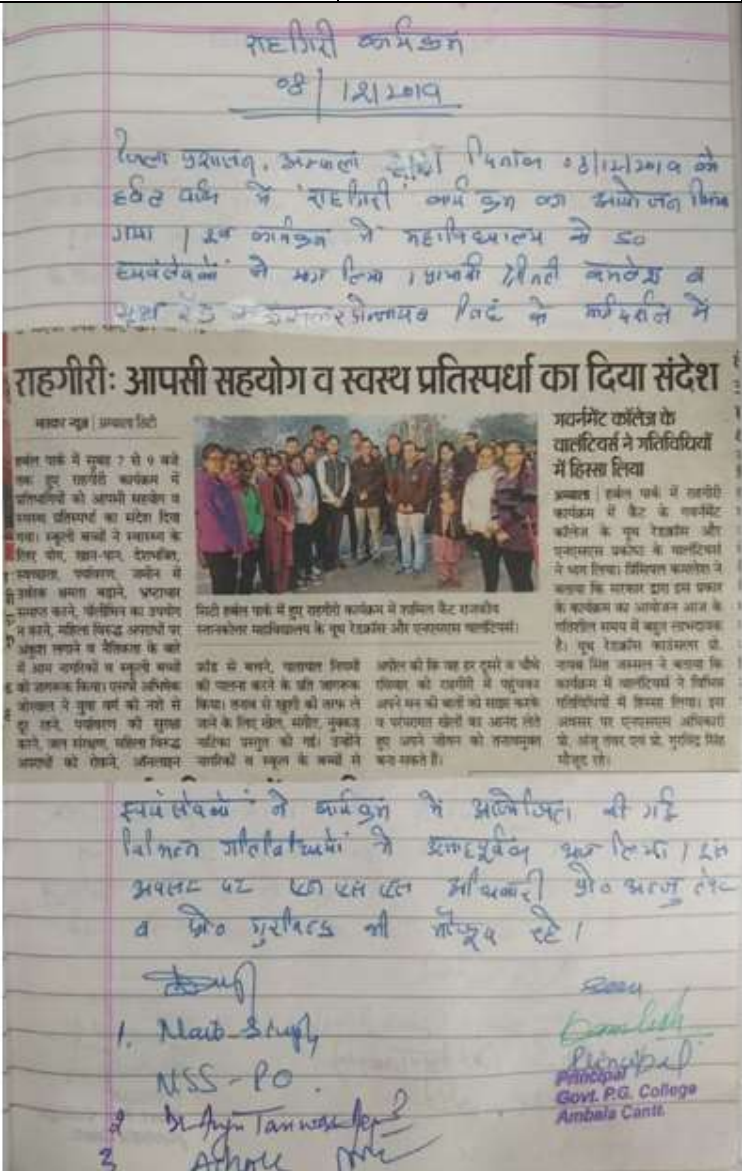 राहगिरी कार्यक्रम
08/12/2019
जिला प्रशासन, अम्बाला द्वारा दिनांक 08/12/2019 को
हर्बल पार्क में 'राहगिरी' कार्य क्रम का आयोजन किया
गया । इस कार्यक्रम में महाविद्यालय के 50
स्वयंसेवकों ने भाग लिया ।
के मार्गदर्शन में
राहगीरी: आपसी सहयोग व स्वस्थ प्रतिस्पर्धा का दिया संदेश
भास्कर न्यूज | अम्बाला सिटी
हर्बल पार्क में सुबह 7 से 9 बजे
तक हुए राहगीरी कार्यक्रम में
प्रतिभागियों को आपसी सहयोग व
स्वस्थ प्रतिस्पर्धा का संदेश दिया
गया। स्कूली बच्चों ने स्वास्थ्य के
लिए योग, खान-पान, देशभक्ति,
स्वच्छता, पर्यावरण, जमीन में
उर्वरक क्षमता बढ़ाने, भ्रष्टाचार
समाप्त करने, पॉलीथिन का उपयोग
न करने, महिला विरुद्ध अपराधों पर
अंकुश लगाने व नैतिकता के बारे
में आम नागरिकों व स्कूली बच्चों
को जागरूक किया। एसपी अभिषेक
जोरवाल ने युवा वर्ग को नशे से
दूर रहने, पर्यावरण की सुरक्षा
करने, जल संरक्षण, महिला विरुद्ध
अपराधों को रोकने, ऑनलाइन
सिटी हर्बल पार्क में हुए राहगीरी कार्यक्रम में शामिल कैंट राजकीय
स्नातकोत्तर महाविद्यालय के यूथ रेडक्रॉस और एनएसएस वालंटियर्स।
फ्रॉड से बचने, यातायात नियमों
की पालना करने के प्रति जागरूक
किया। तनाव से खुशी की तरफ ले
जाने के लिए खेल, संगीत, नुक्कड़
नाटिका प्रस्तुत की गई। उन्होंने
नागरिकों व स्कूल के बच्चों से
अपील की कि वह हर दूसरे व चौथे
रविवार को राहगीरी में पहुंचकर
अपने मन की बातों को साझा करके
व परंपरागत खेलों का आनंद लेते
हुए अपने जीवन को तनावमुक्त
बना सकते हैं।
गवर्नमेंट कॉलेज के
वालंटियर्स ने गतिविधियों
में हिस्सा लिया
अम्बाला | हर्बल पार्क में राहगीरी
कार्यक्रम में कैंट के गवर्नमेंट
कॉलेज के यूथ रेडक्रॉस और
एनएसएस प्रकोष्ठ के वालंटियर्स
ने भाग लिया। प्रिंसिपल कमलेश ने
बताया कि सरकार द्वारा इस प्रकार
के कार्यक्रम का आयोजन आज के
गतिशील समय में बहुत लाभदायक
है। यूथ रेडक्रॉस काउंसलर प्रो.
नायब सिंह जस्सल ने बताया कि
कार्यक्रम में वालंटियर्स ने विभिन्न
गतिविधियों में हिस्सा लिया। इस
अवसर पर एनएसएस अधिकारी
प्रो. अंजू तंवर एवं प्रो. गुरविंद्र सिंह
मौजूद रहे।
स्वयंसेवकों ने कार्यक्रम में आयोजित की गई
विभिन्न गतिविधियों में उत्साहपूर्वक भाग लिया । इस
अवसर पर एन एस एस अधिकारी प्रो० अन्जु तंवर
व प्रो० गुरविन्द्र भी मौजूद रहे ।
1. Naib Singh
NSS-PO.
2 Dr. Anju Tanwar
3 Ashok
Kamlesh
Principal
Principal
Govt. P.G. College
Ambala Cantt.